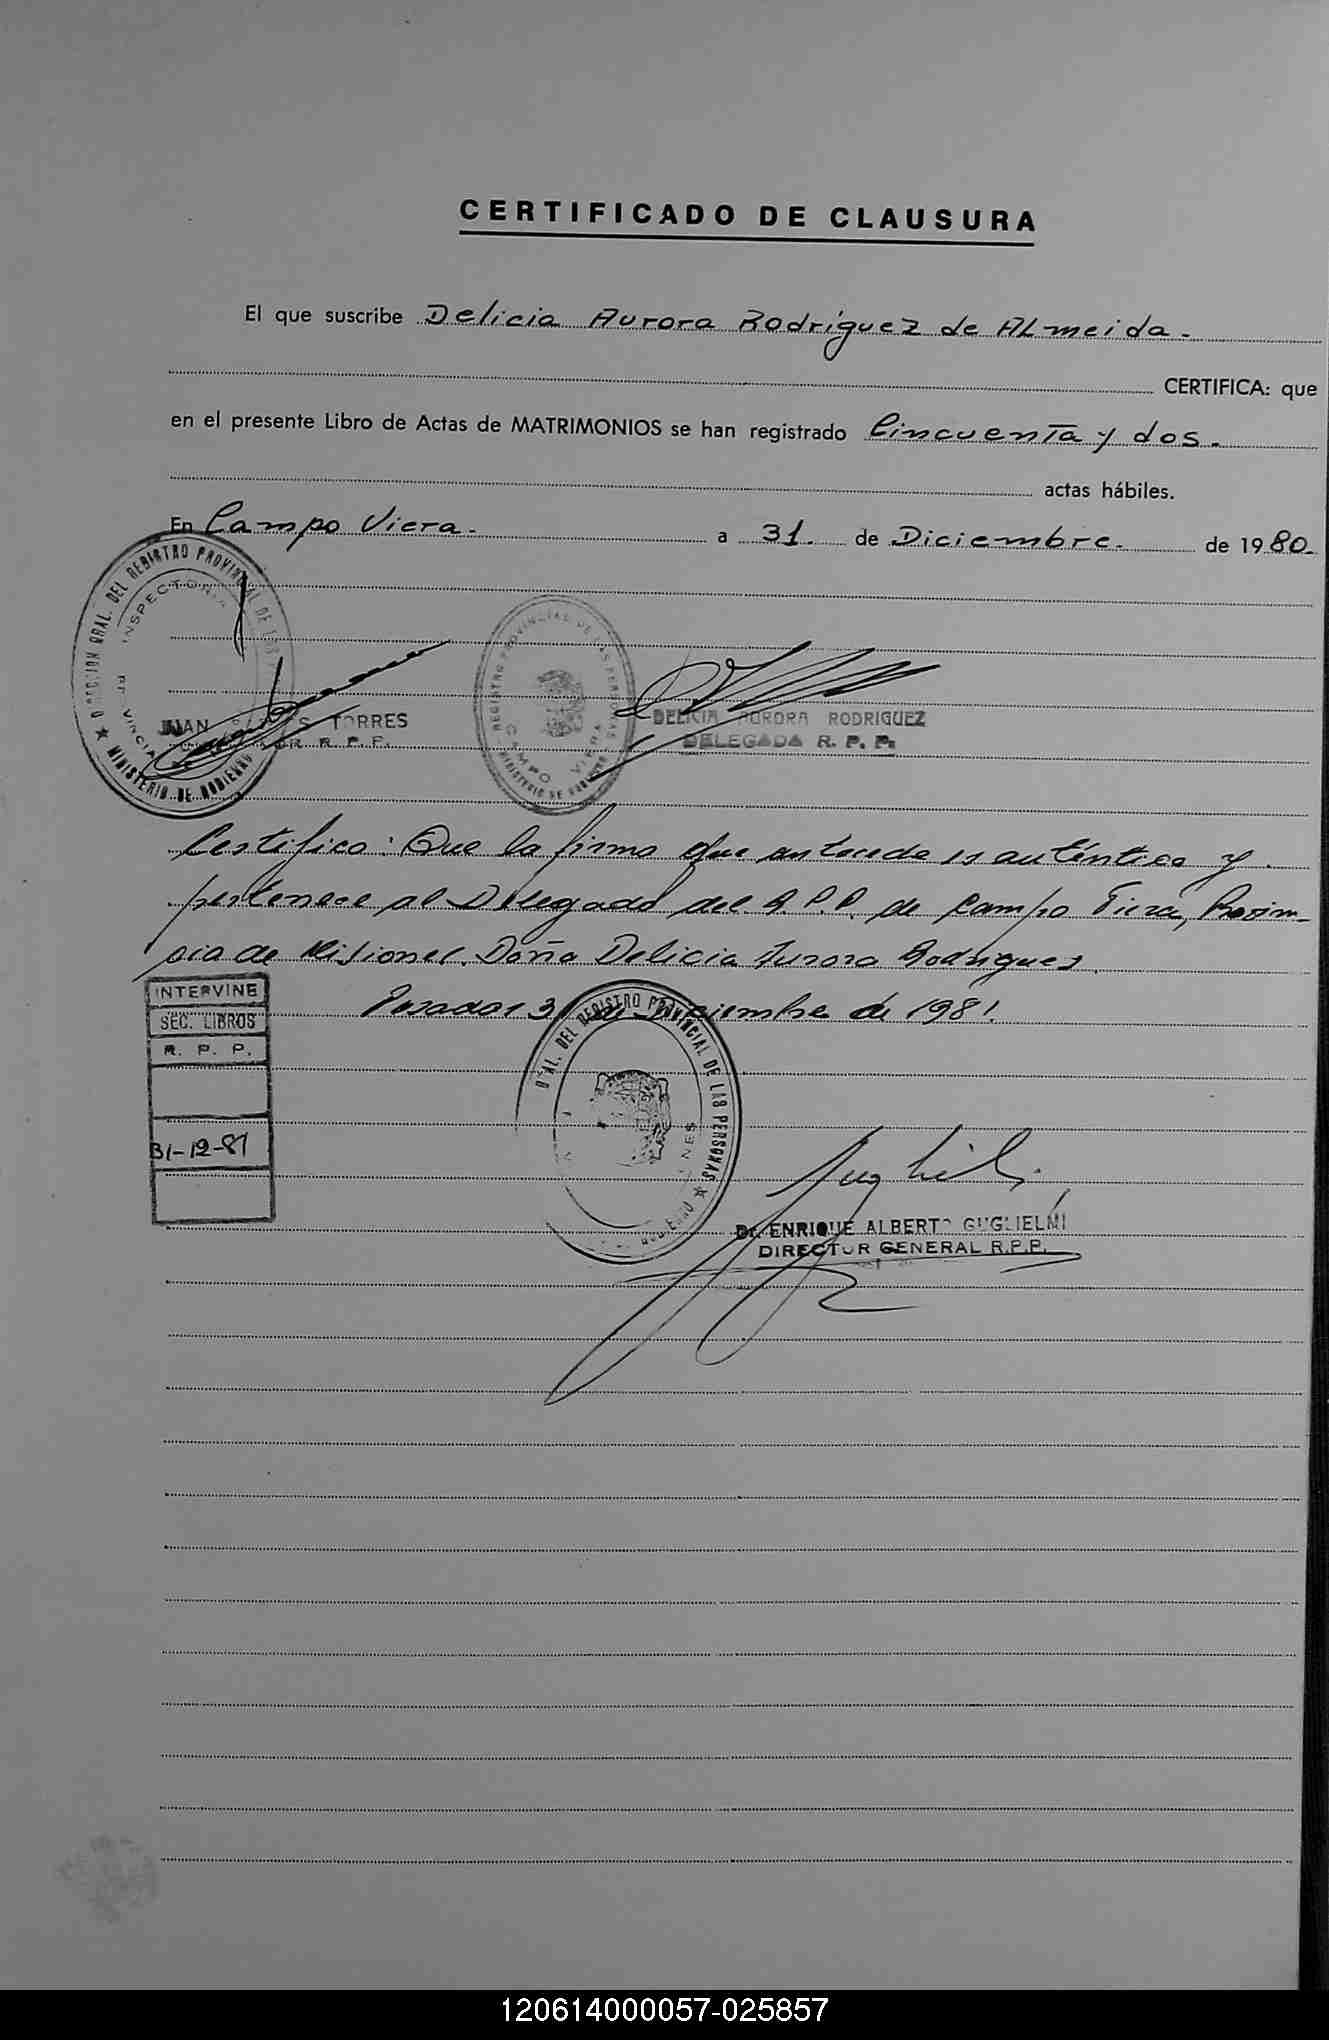 CERTIFICADO DE CLAUSURA
El que suscribe Delicia Aurora Rodríguez de Almeida.
CERTIFICA: que
en el presente Libro de Actas de MATRIMONIOS se han registrado Cincuenta y dos.
actas hábiles.
En Campo Viera. a 31. de Diciembre. de 1980.
DIRECCION GRAL. DEL REGISTRO PROVINCIAL DE LAS
INSPECTORIA
MINISTERIO DE GOBIERNO
JUAN TORRES
R. P. P.
REGISTRO PROVINCIAL DE LAS PERSONAS
CAMPO VIERA
MINISTERIO DE GOBIERNO
DELICIA AURORA RODRIGUEZ
DELEGADA R. P. P.
Certifico: Que la firma que antecede es auténtica y
pertenece al Delegado del R.P.P. de Campo Viera, Provin-
cia de Misiones. Doña Delicia Aurora Rodrigues
Posadas 31 de Diciembre de 1981.
INTERVINE
SEC. LIBROS
R. P. P.
31-12-81
GRAL. DEL REGISTRO PROVINCIAL DE LAS PERSONAS
Dr. ENRIQUE ALBERTO GUGLIELMI
DIRECTOR GENERAL R.P.P.
120614000057-025857